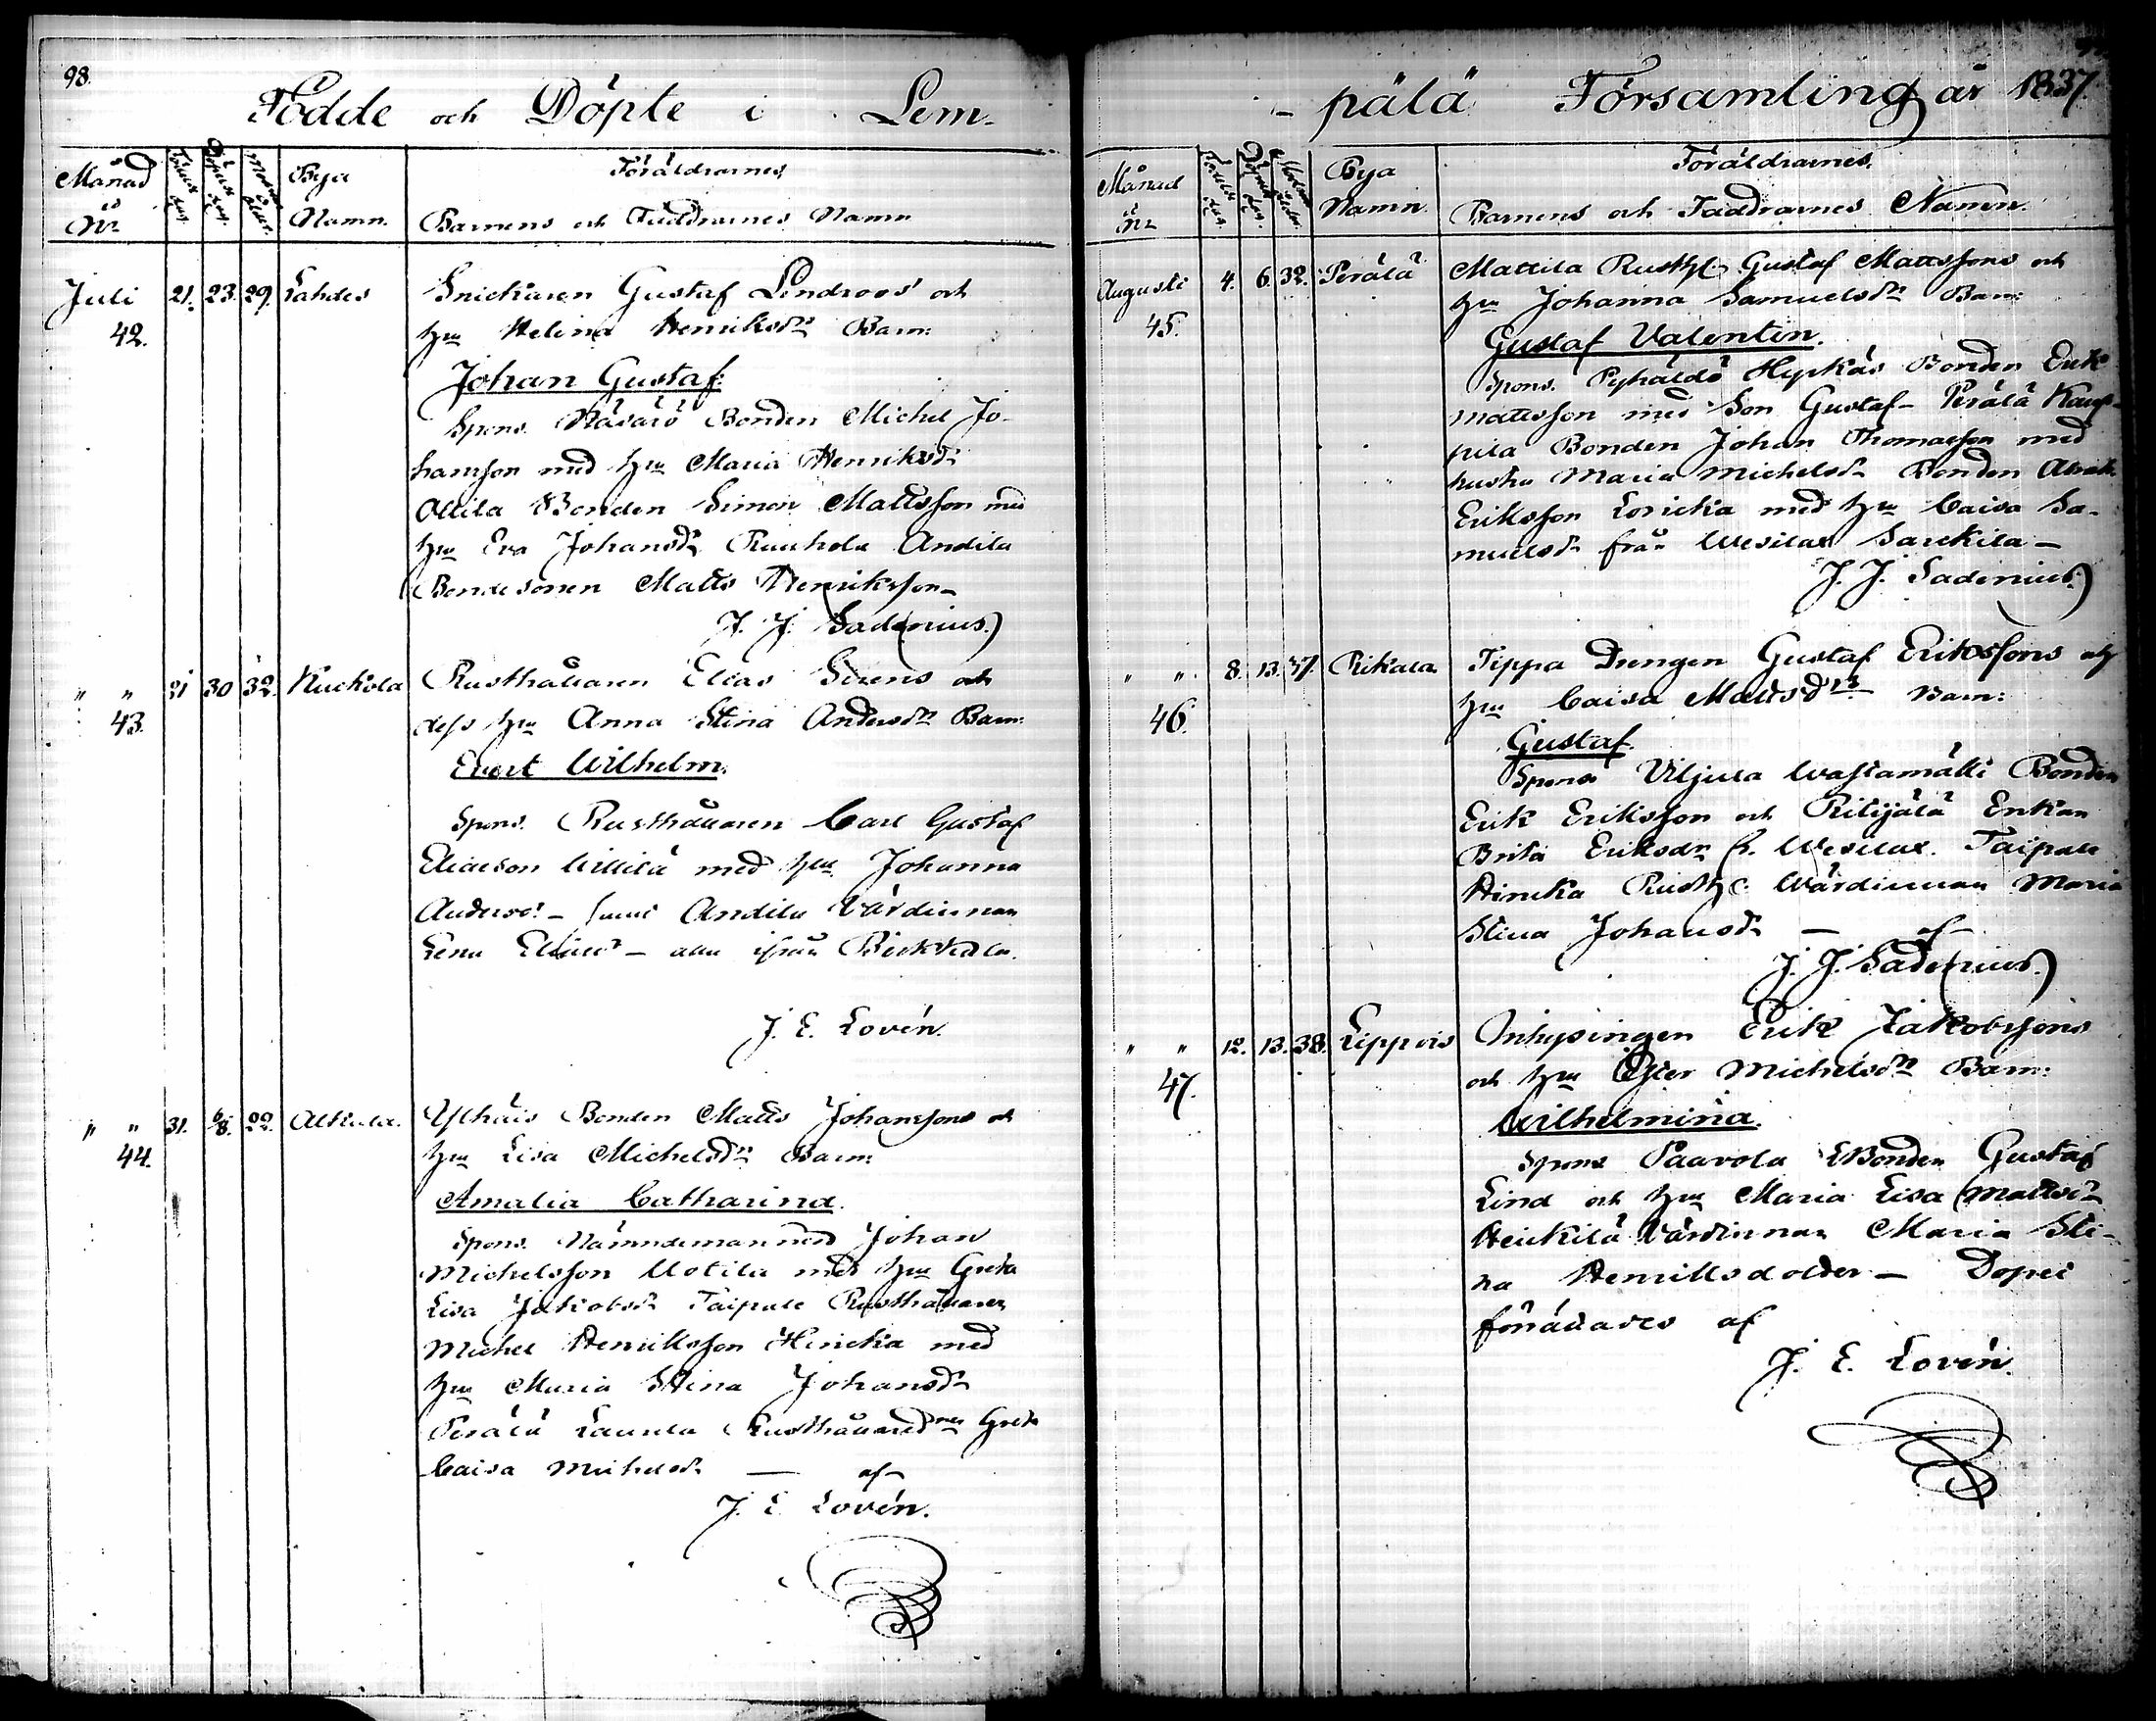 98.
Födde och Döpte i Lem-
Månad
Födelse dag.
Döpelse dag.
Modrens ålder.
Bya
Föräldrarnes
Nr
Namn.
Barnens och Faddrarnes Namn
Juli 21. 23. 29. Lahdes Snickaren Gustaf Lindroos' och
42. hu Helena Henriksdrs Barn:
Johan Gustaf.
Spons. Bonden Michel Jo-
hansson med hu Maria Henriksdr
Ollila Bonden Simon Mattsson med
hu Eva Johansdr Ruuhola Andila
Bondesonen Matts Henriksson –
J. J. Sadenius.
" " 21 30 32. Kuckola Rusthållaren Elias Sirens och
43. dess hu Anna Stina Andersdrs Barn:
Evert Wilhelm.
Spons. Rusthållaren Carl Gustaf
Eliaeson Willilä med hu Johanna
Andersd: – Andila Värdinnan
Lena – alla ifrån Birkkala.
J. E. Lovén.
" " 31. 6/8. 22. Alkula. Bonden Matts Johanssons och
44. hu Lisa Michelsdrs Barn:
Amalia Catharina.
Spons. Nämndemannen Johan
Michelsson Uotila med hu Greta
Lisa Jakobsdr Taipale Rusthållaren
Michel Henriksson Hincka med
hu Maria Stina Johansdr
Perälä Laurila Greta
Caisa Michelsdr — af
J. E. Lovén.
- pälä Församling år 1837.
Månad
Födelse dag.
Döpelse dag.
Modrens ålder.
Bya
Föräldrarnes.
Nr
Namn.
Barnens och Faddrarnes Namn.
Augusti 4. 6. 32. Perälä Mattila Rusth. Gustaf Mattssons och
45. hu Johanna Samuelsdrs Barn:
Gustaf Valentin.
Spons. Pyhäldö Hypkäs Bonden Erik
Mattsson med Son Gustaf – Perälä Kaup-
pila Bonden Johan Thomasson med
hustru Maria Michelsdr Bonden
Eriksson med hu Caisa Sa-
muelsdr från Wesilax Sarckila –
J. J. Sadenius.
" " 8. 13. 37. Rikala Tippa Drengen Gustaf Erikssons och
46. hu Caisa Mattsdrs Barn:
Gustaf.
Spons Viljula Wastamätti Bonden
Erik Eriksson och Enkan
Brita Eriksdr fr. Wesilax. Taipale
Hincka Rusth. Wärdinnan Maria
Stina Johansdr — af
J. J. Sadenius.
" " 12. 13. 38. Lippois Inhysingen Erik Jakobssons
47. och hu Ester Michelsdrs Barn:
Wilhelmina.
Spons Paavola Bonden Gustaf
Lind och hu Maria Lisa Mattsdr
Heickilä Värdinnan Maria Sti-
na Henriksdotter – Dopet
förrättades af
J. E. Lovén.